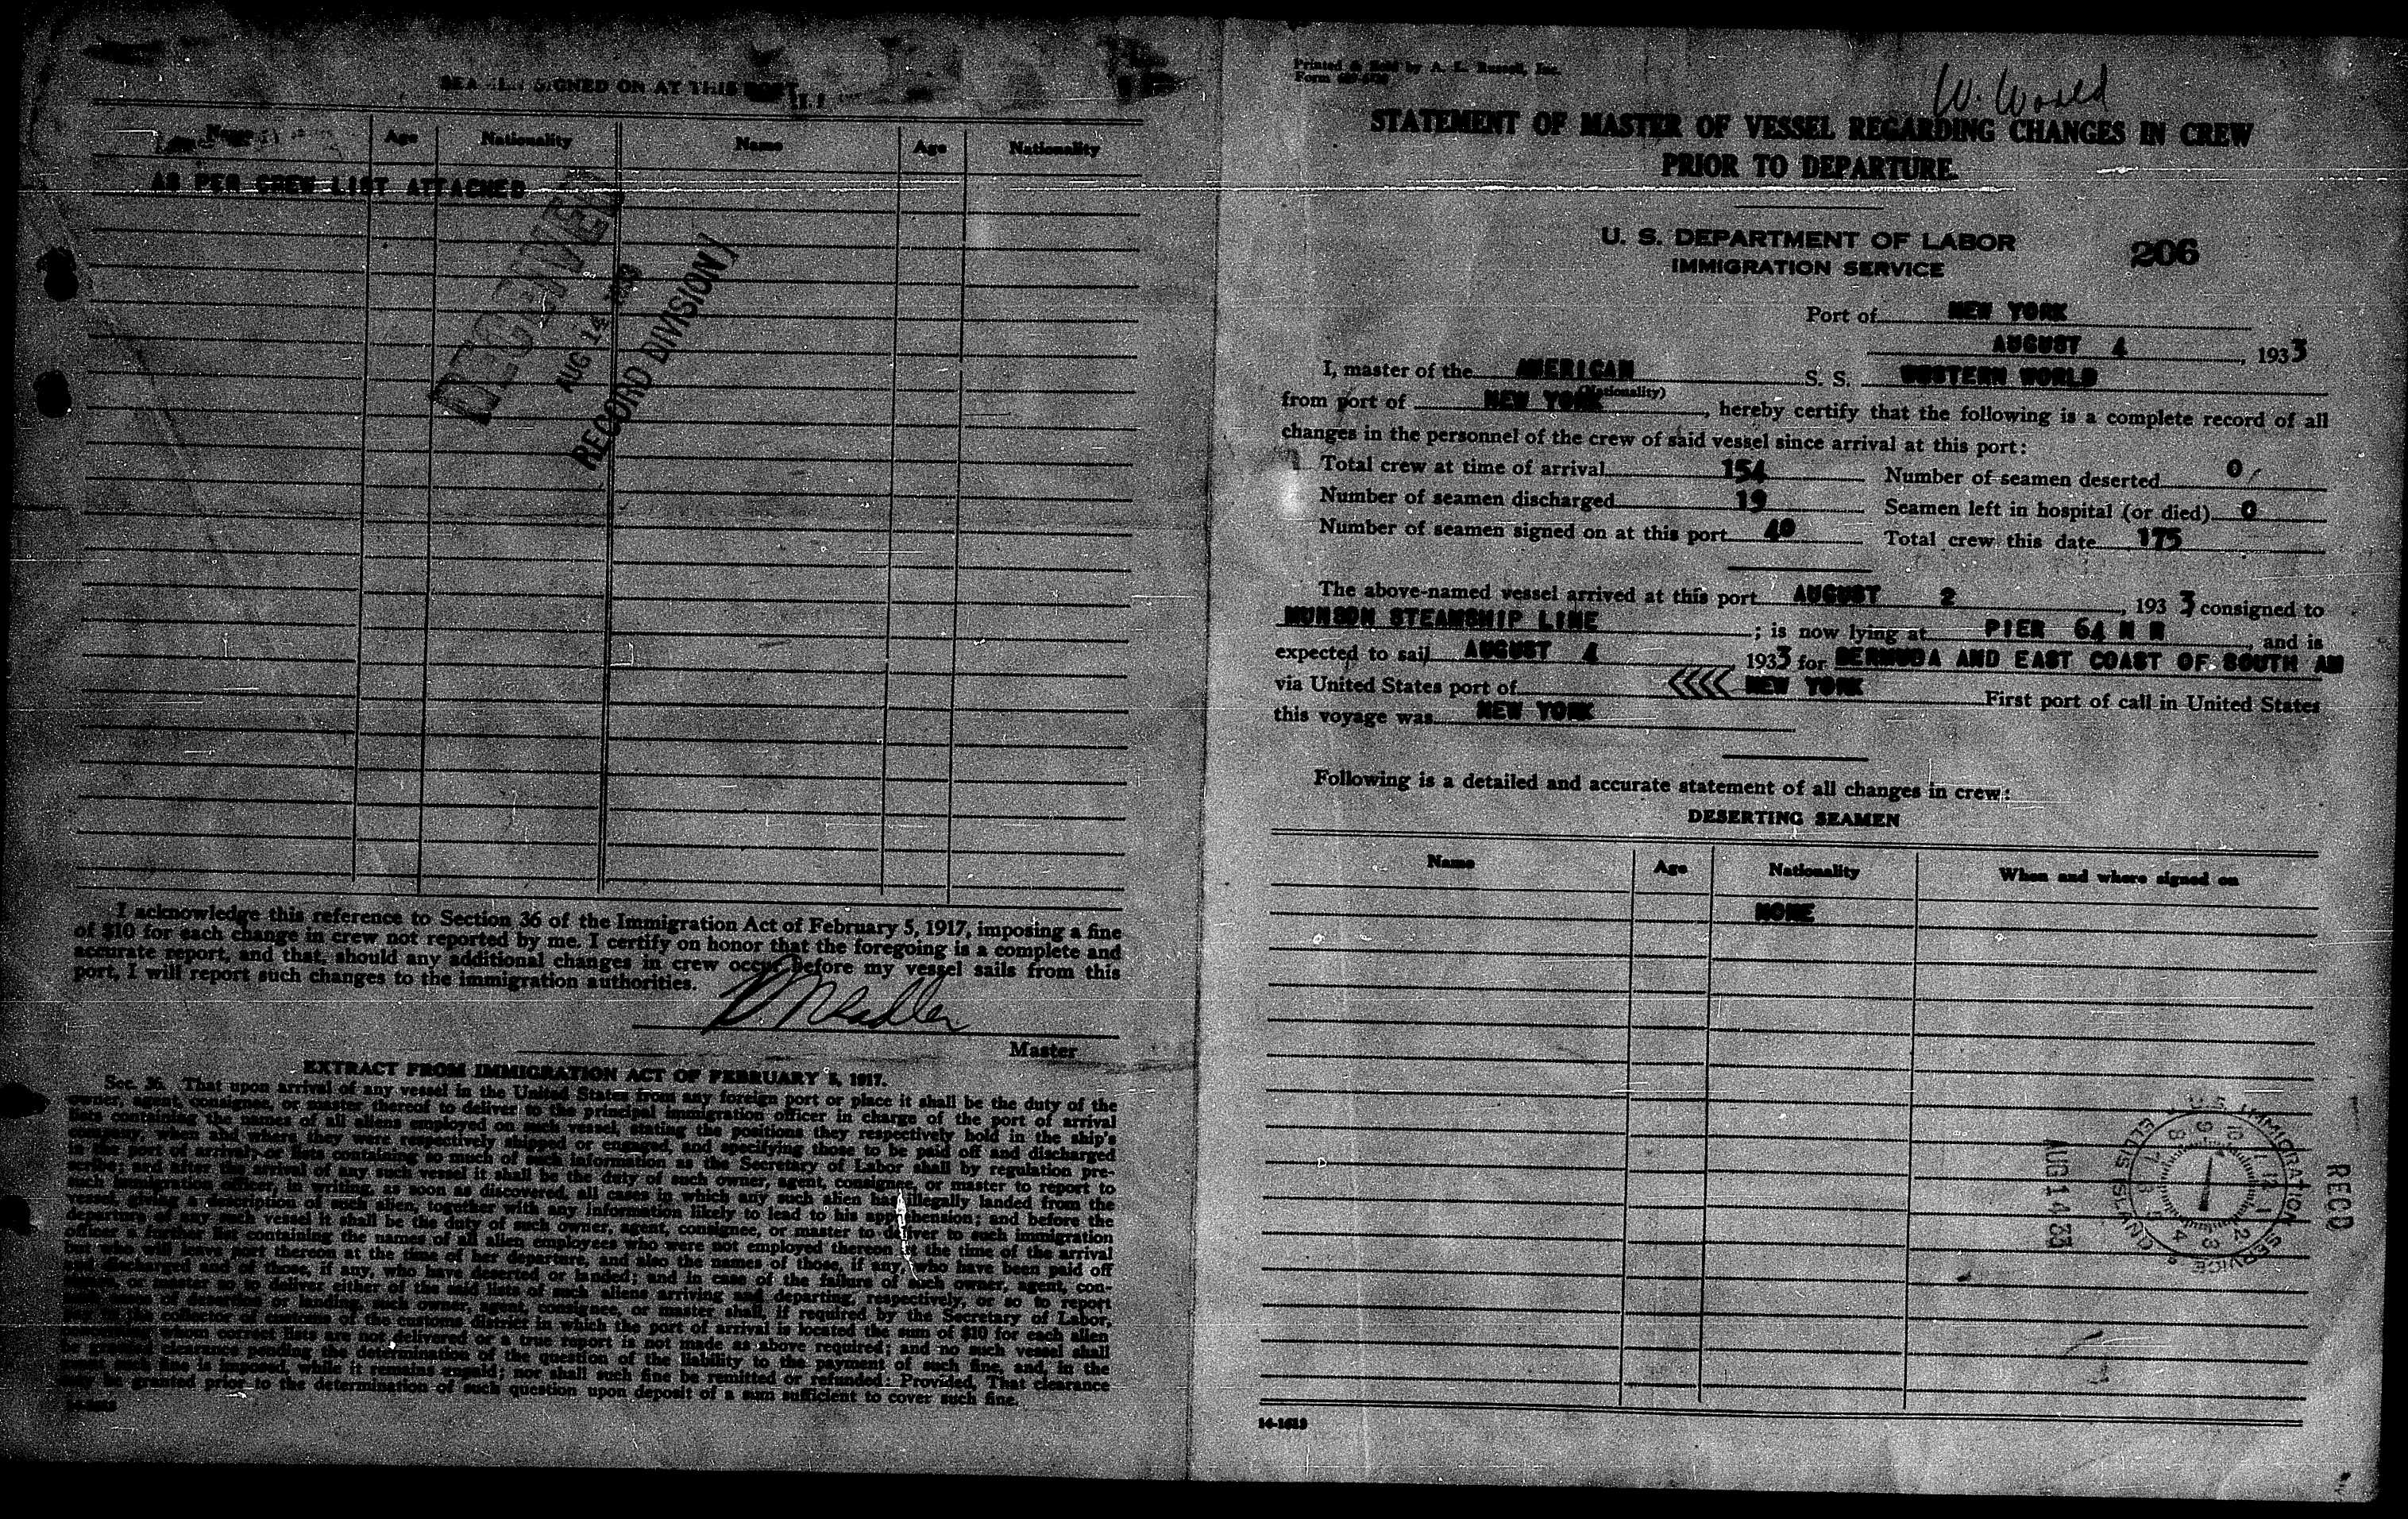 SIGNED ON AT THIS PORT
Name Age Nationality Name Age Nationality
AS PER CREW LIST ATTACHED
RECEIVED
AUG 14 1933
RECORD DIVISION
I acknowledge this reference to Section 36 of the Immigration Act of February 5, 1917, imposing a fine
of $10 for each change in crew not reported by me. I certify on honor that the foregoing is a complete and
accurate report, and that, should any additional changes in crew occur before my vessel sails from this
port, I will report such changes to the immigration authorities.
Master
EXTRACT FROM IMMIGRATION ACT OF FEBRUARY 5, 1917.
Sec. 36. That upon arrival of any vessel in the United States from any foreign port or place it shall be the duty of the
owner, agent, consignee, or master thereof to deliver to the principal immigration officer in charge of the port of arrival
lists containing the names of all aliens employed on such vessel, stating the positions they respectively hold in the ship's
company, when and where they were respectively shipped or engaged, and specifying those to be paid off and discharged
in the port of arrival; or lists containing so much of such information as the Secretary of Labor shall by regulation pre-
scribe; and after the arrival of any such vessel it shall be the duty of such owner, agent, consignee, or master to report to
such immigration officer, in writing, as soon as discovered, all cases in which any such alien has illegally landed from the
vessel, giving a description of such alien, together with any information likely to lead to his apprehension; and before the
departure of any such vessel it shall be the duty of such owner, agent, consignee, or master to deliver to such immigration
officer a further list containing the names of all alien employees who were not employed thereon at the time of the arrival
but who will leave port thereon at the time of her departure, and also the names of those, if any, who have been paid off
and discharged and of those, if any, who have deserted or landed; and in case of the failure of such owner, agent, con-
signee, or master so to deliver either of the said lists of such aliens arriving and departing, respectively, or so to report
such cases of desertion or landing, such owner, agent, consignee, or master shall, if required by the Secretary of Labor,
pay to the collector of customs of the customs district in which the port of arrival is located the sum of $10 for each alien
concerning whom correct lists are not delivered or a true report is not made as above required; and no such vessel shall
be granted clearance pending the determination of the question of the liability to the payment of such fine, and, in the
event such fine is imposed, while it remains unpaid; nor shall such fine be remitted or refunded: Provided, That clearance
may be granted prior to the determination of such question upon deposit of a sum sufficient to cover such fine.
Printed & Sold by A. L. Russell, Inc.
Form
W. World
STATEMENT OF MASTER OF VESSEL REGARDING CHANGES IN CREW
PRIOR TO DEPARTURE.
U. S. DEPARTMENT OF LABOR
IMMIGRATION SERVICE
206
Port of NEW YORK
AUGUST 4, 1933
I, master of the AMERICAN S. S. WESTERN WORLD
(Nationality)
from port of NEW YORK, hereby certify that the following is a complete record of all
changes in the personnel of the crew of said vessel since arrival at this port:
Total crew at time of arrival 154 Number of seamen deserted 0
Number of seamen discharged 19 Seamen left in hospital (or died) 0
Number of seamen signed on at this port 40 Total crew this date 175
The above-named vessel arrived at this port AUGUST 2, 1933 consigned to
MUNSON STEAMSHIP LINE; is now lying at PIER 64 N R and is
expected to sail AUGUST 4, 1933 for BERMUDA AND EAST COAST OF SOUTH AM
via United States port of <<<< NEW YORK First port of call in United States
this voyage was NEW YORK
Following is a detailed and accurate statement of all changes in crew:
DESERTING SEAMEN
Name Age Nationality When and where signed on
NONE
RECD
U. S. IMMIGRATION SERVICE
ELLIS ISLAND
9 10 11 12 1 2 3 4 5 6 7 8
AUG 14 33
14-1613